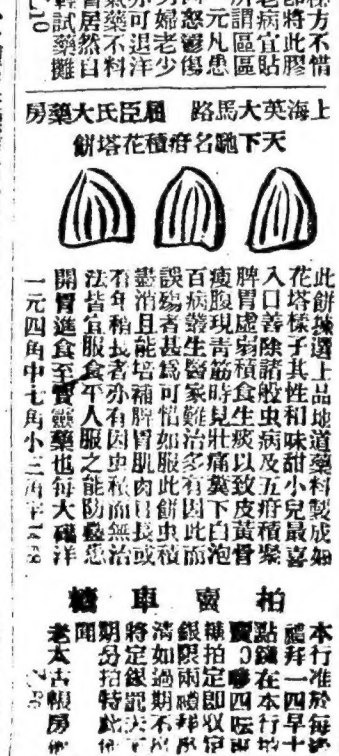 方不惜
即將此膠
老病宜貼
所謂區區
元凡患
怒鬱傷
婦老少
亦可退洋
藥不料
居然自
輕試藥攤
上海英大馬路 屈臣氏大藥房
天下馳名疳積花塔餅
此餅揀選上品地道藥料製成如
花塔樣子其性和味甜小兒最喜
入口善除諸般虫病及五疳積聚
脾胃虛弱積食生痰以致皮黃骨
瘦腹現青筋時見壯痛糞下白泡
百病叢生醫家難治多有因此而
誤殤者甚爲可惜如服此餅虫積
盡消且能培補脾胃肌肉日長或
有年稍長者亦有因虫積而無治
法皆宜服食平人服之能防蠱患
開胃進食至寶靈藥也每大磁洋
一元四角中七角小三角半
拍賣車糖
本行准於每
禮拜一四早十
點鐘在本行拍
賣
拍定即收定
銀限兩禮拜
清如過期不
將定銀罰
期另拍特此
聞
老太古帳房